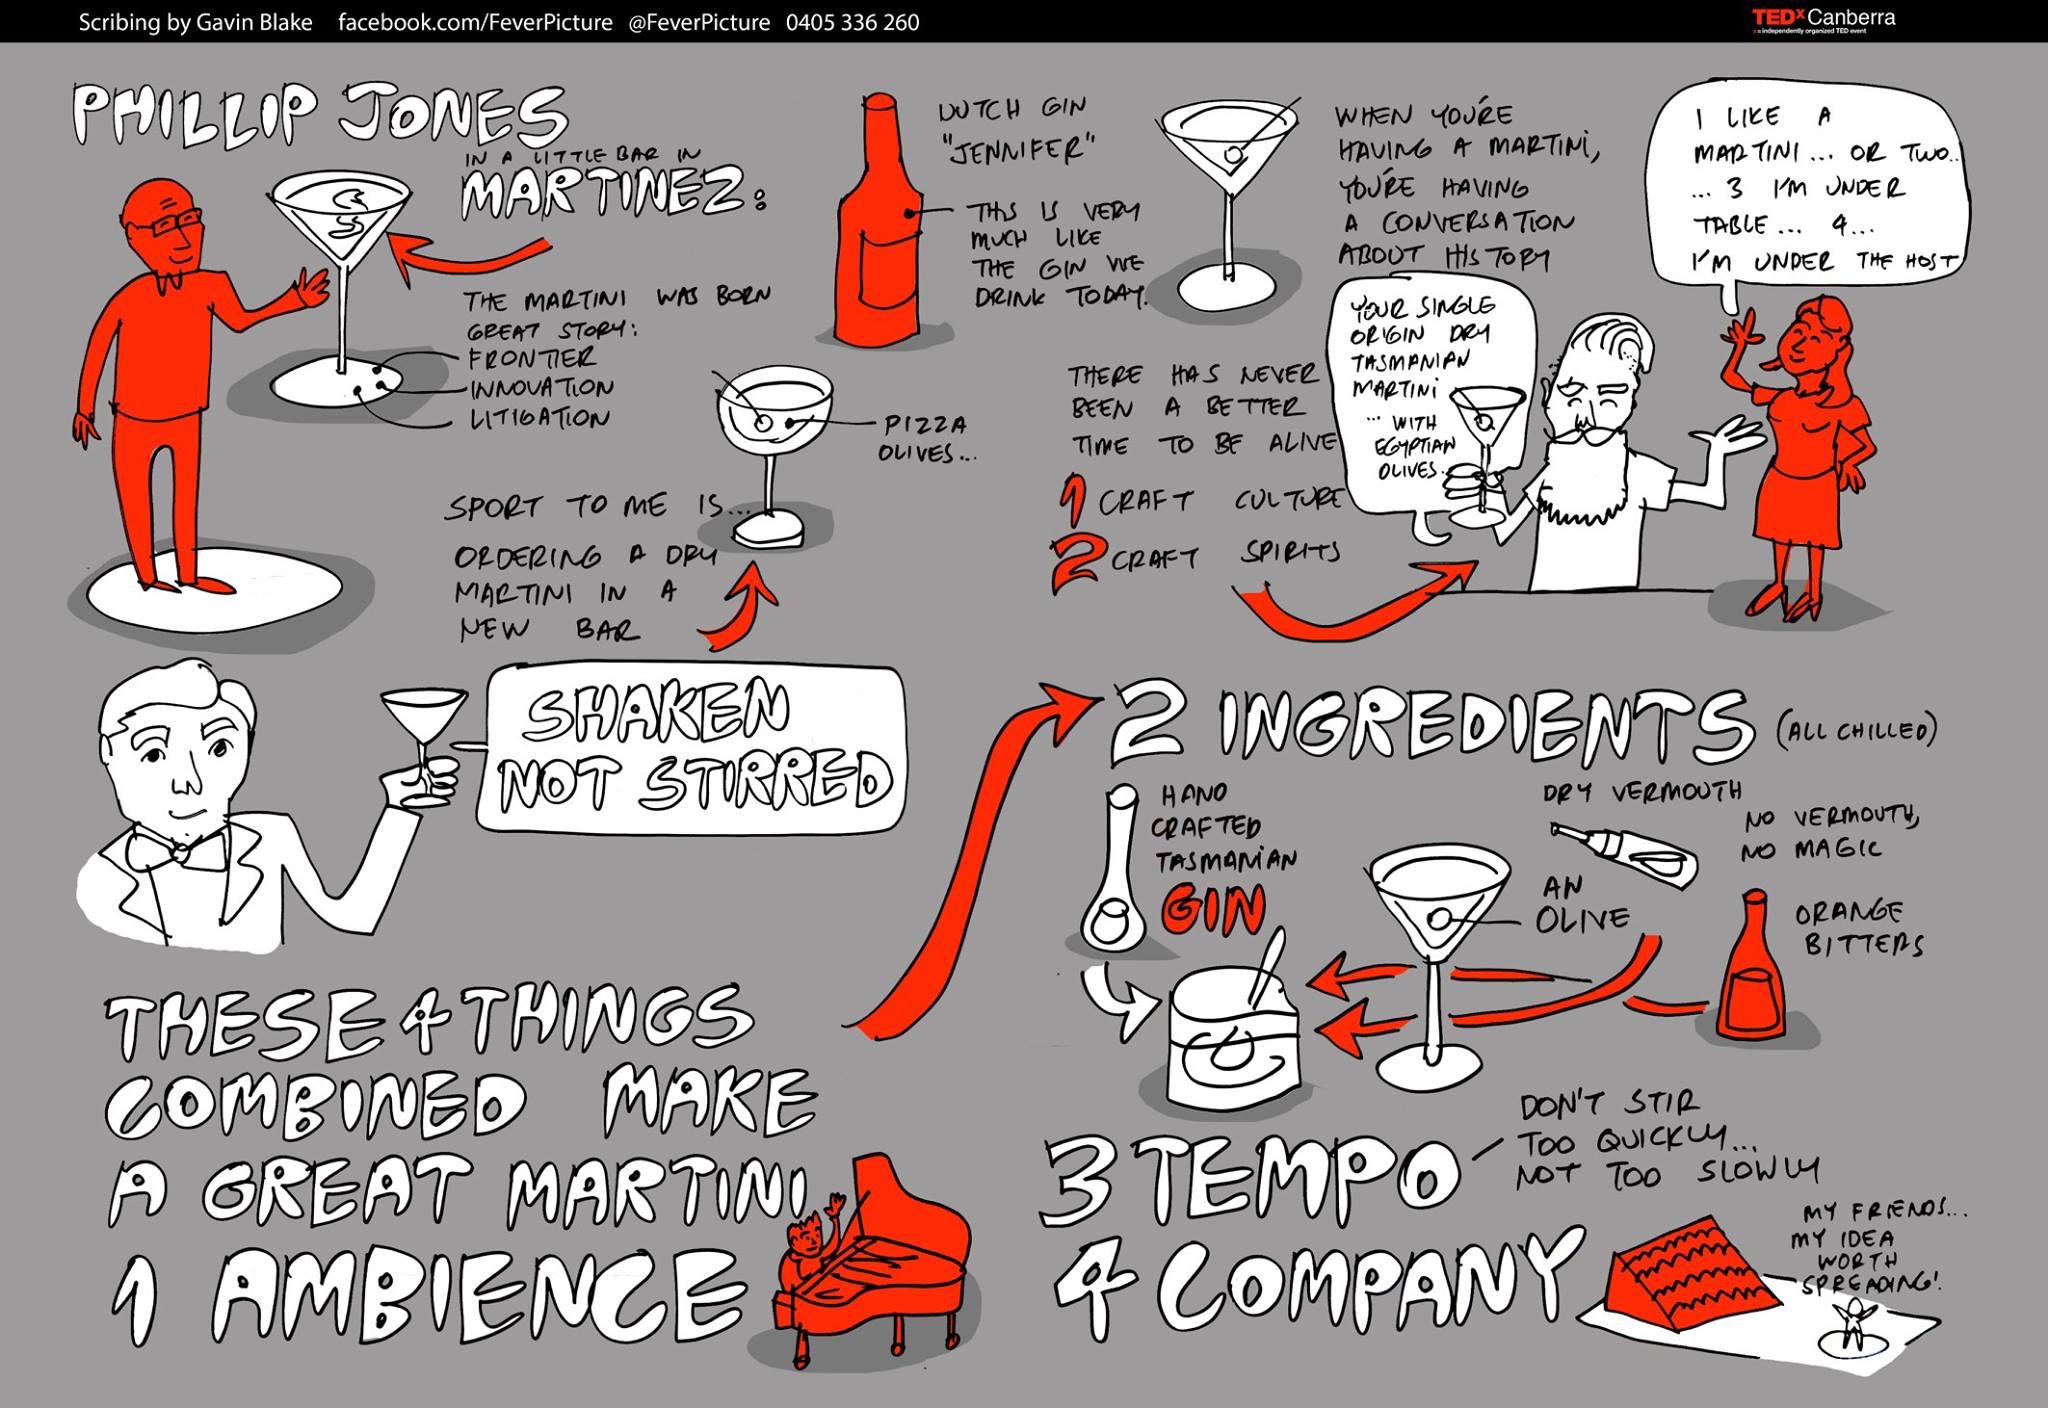 Scribing by Gavin Blake facebook.com/FeverPicture @FeverPicture 0405 336 260
TEDxCanberra
x = independently organized TED event
PHILLIP JONES
IN A LITTLE BAR IN
MARTINEZ:
THE MARTINI WAS BORN
GREAT STORY:
FRONTIER
INNOVATION
LITIGATION
DUTCH GIN
"JENNIFER"
THIS IS VERY
MUCH LIKE
THE GIN WE
DRINK TODAY.
WHEN YOU'RE
HAVING A MARTINI,
YOU'RE HAVING
A CONVERSATION
ABOUT HISTORY
I LIKE A
MARTINI... OR TWO...
... 3 I'M UNDER
TABLE... 4...
I'M UNDER THE HOST
SPORT TO ME IS...
ORDERING A DRY
MARTINI IN A
NEW BAR
PIZZA
OLIVES...
THERE HAS NEVER
BEEN A BETTER
TIME TO BE ALIVE
1 CRAFT CULTURE
2 CRAFT SPIRITS
YOUR SINGLE
ORIGIN DRY
TASMANIAN
MARTINI
... WITH
EGYPTIAN
OLIVES...
SHAKEN
NOT STIRRED
THESE 4 THINGS
COMBINED MAKE
A GREAT MARTINI
1 AMBIENCE
2 INGREDIENTS (ALL CHILLED)
HAND
CRAFTED
TASMANIAN
GIN
DRY VERMOUTH
NO VERMOUTH,
NO MAGIC
AN
OLIVE
ORANGE
BITTERS
3 TEMPO
DON'T STIR
TOO QUICKLY...
NOT TOO SLOWLY
4 COMPANY
MY FRIENDS...
MY IDEA
WORTH
SPREADING!